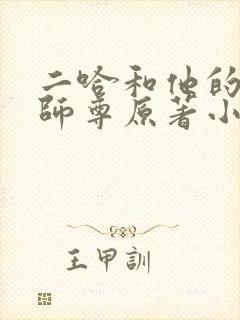 二哈和他的
師尊原著小
王甲訓